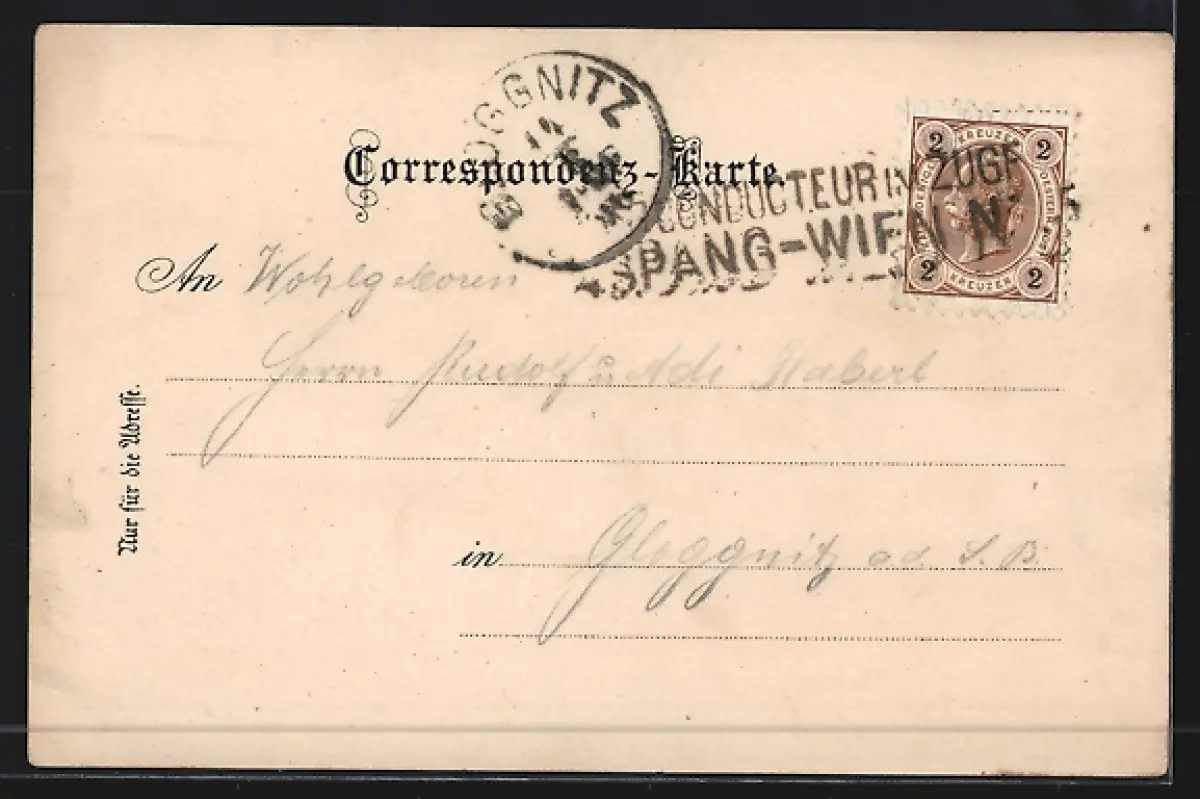 GLOGGNITZ
Correspondenz-Karte.
CONDUCTEUR IM ZUGE
ASPANG-WIEN Nº
2 KREUZER 2
2 KREUZER 2
An Wohlgeboren
Herrn Rudolf u Adi Habert
Nur für die Adresse.
in Gloggnitz a d. S. B.